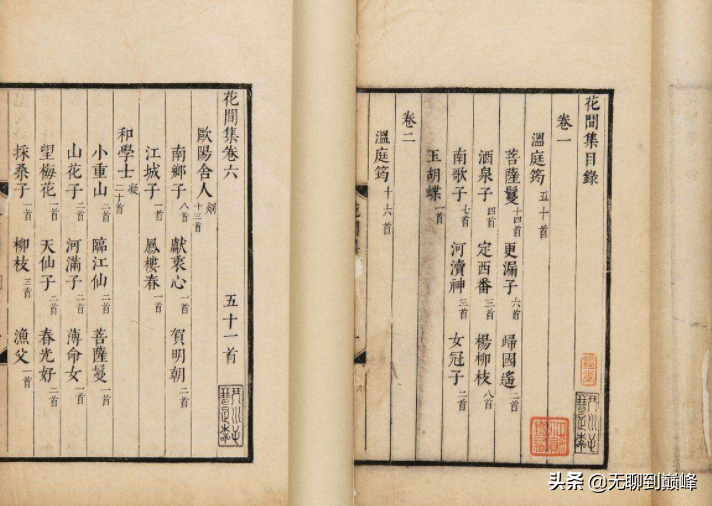 花間集目錄
卷一
溫庭筠 五十首
菩薩鬘 十四首 更漏子 六首 歸國遙 二首
酒泉子 四首 定西番 三首 楊柳枝 八首
南歌子 七首 河瀆神 三首 女冠子 二首
玉胡蝶 一首
卷二
溫庭筠 十六首
花間集卷六 五十一首
歐陽舍人 炯 十三首
南鄉子 八首 獻衷心 一首 賀明朝 二首
江城子 一首 鳳樓春 一首
和學士 凝 二十首
小重山 二首 臨江仙 二首 菩薩鬘 一首
山花子 二首 河滿子 二首 薄命女 一首
望梅花 一首 天仙子 二首 春光好 二首
採桒子 一首 柳枝 三首 漁父 一首
头条 @无聊到巅峰